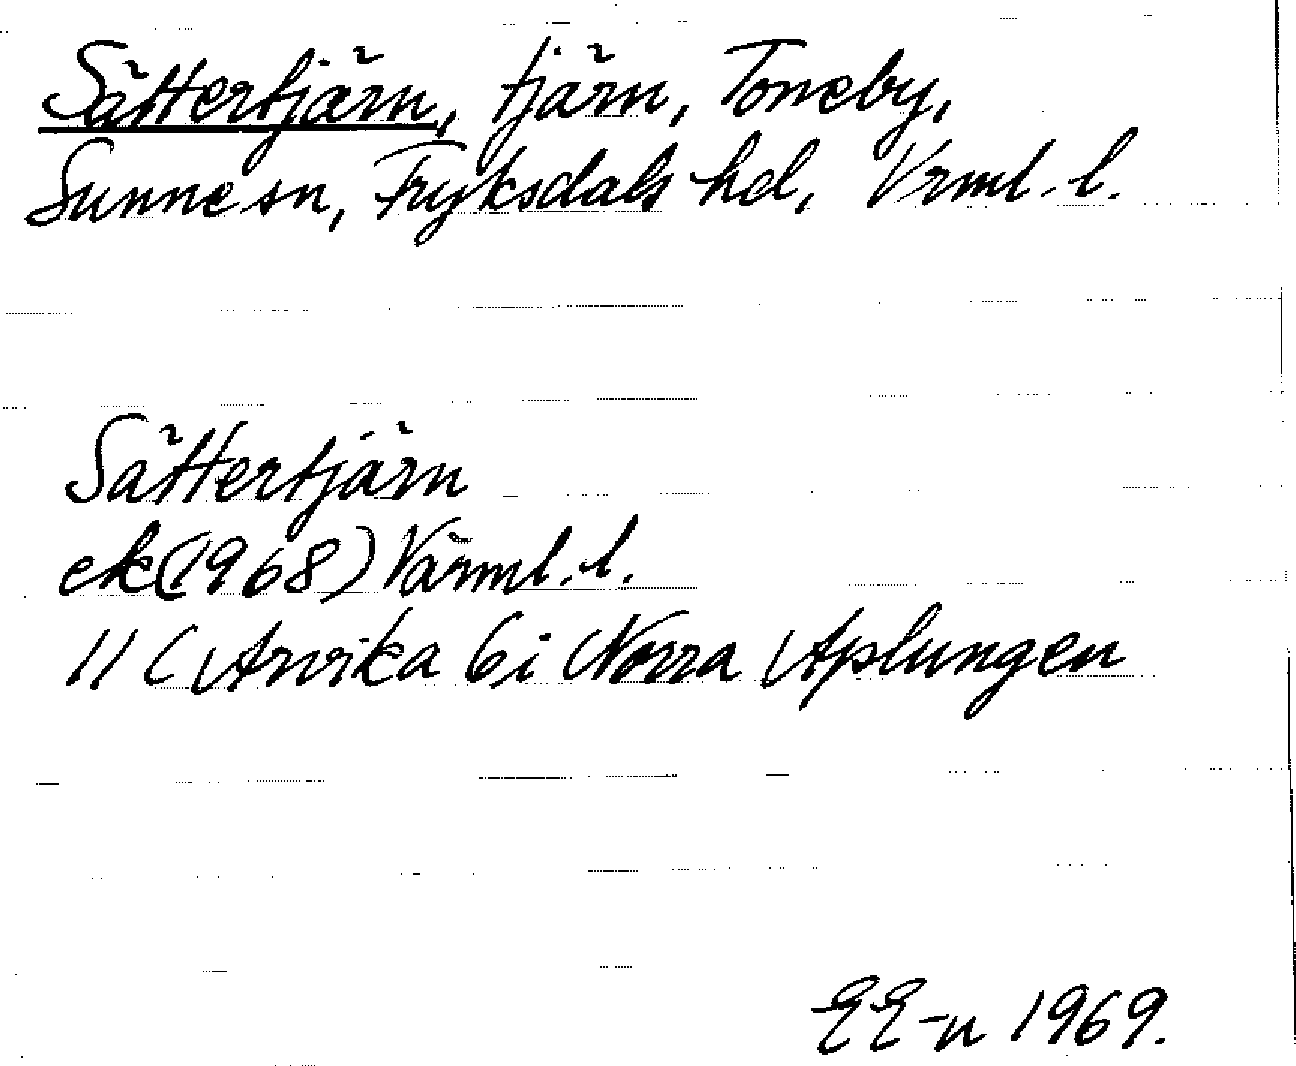 Sättertjärn, tjärn, Toneby,
Sunne sn, Fryksdals hd, Vrml. l.
Sättertjärn
ek (1968) Värml. l.
11 C Arvika 6i Norra Aplungen
EE-n 1969.